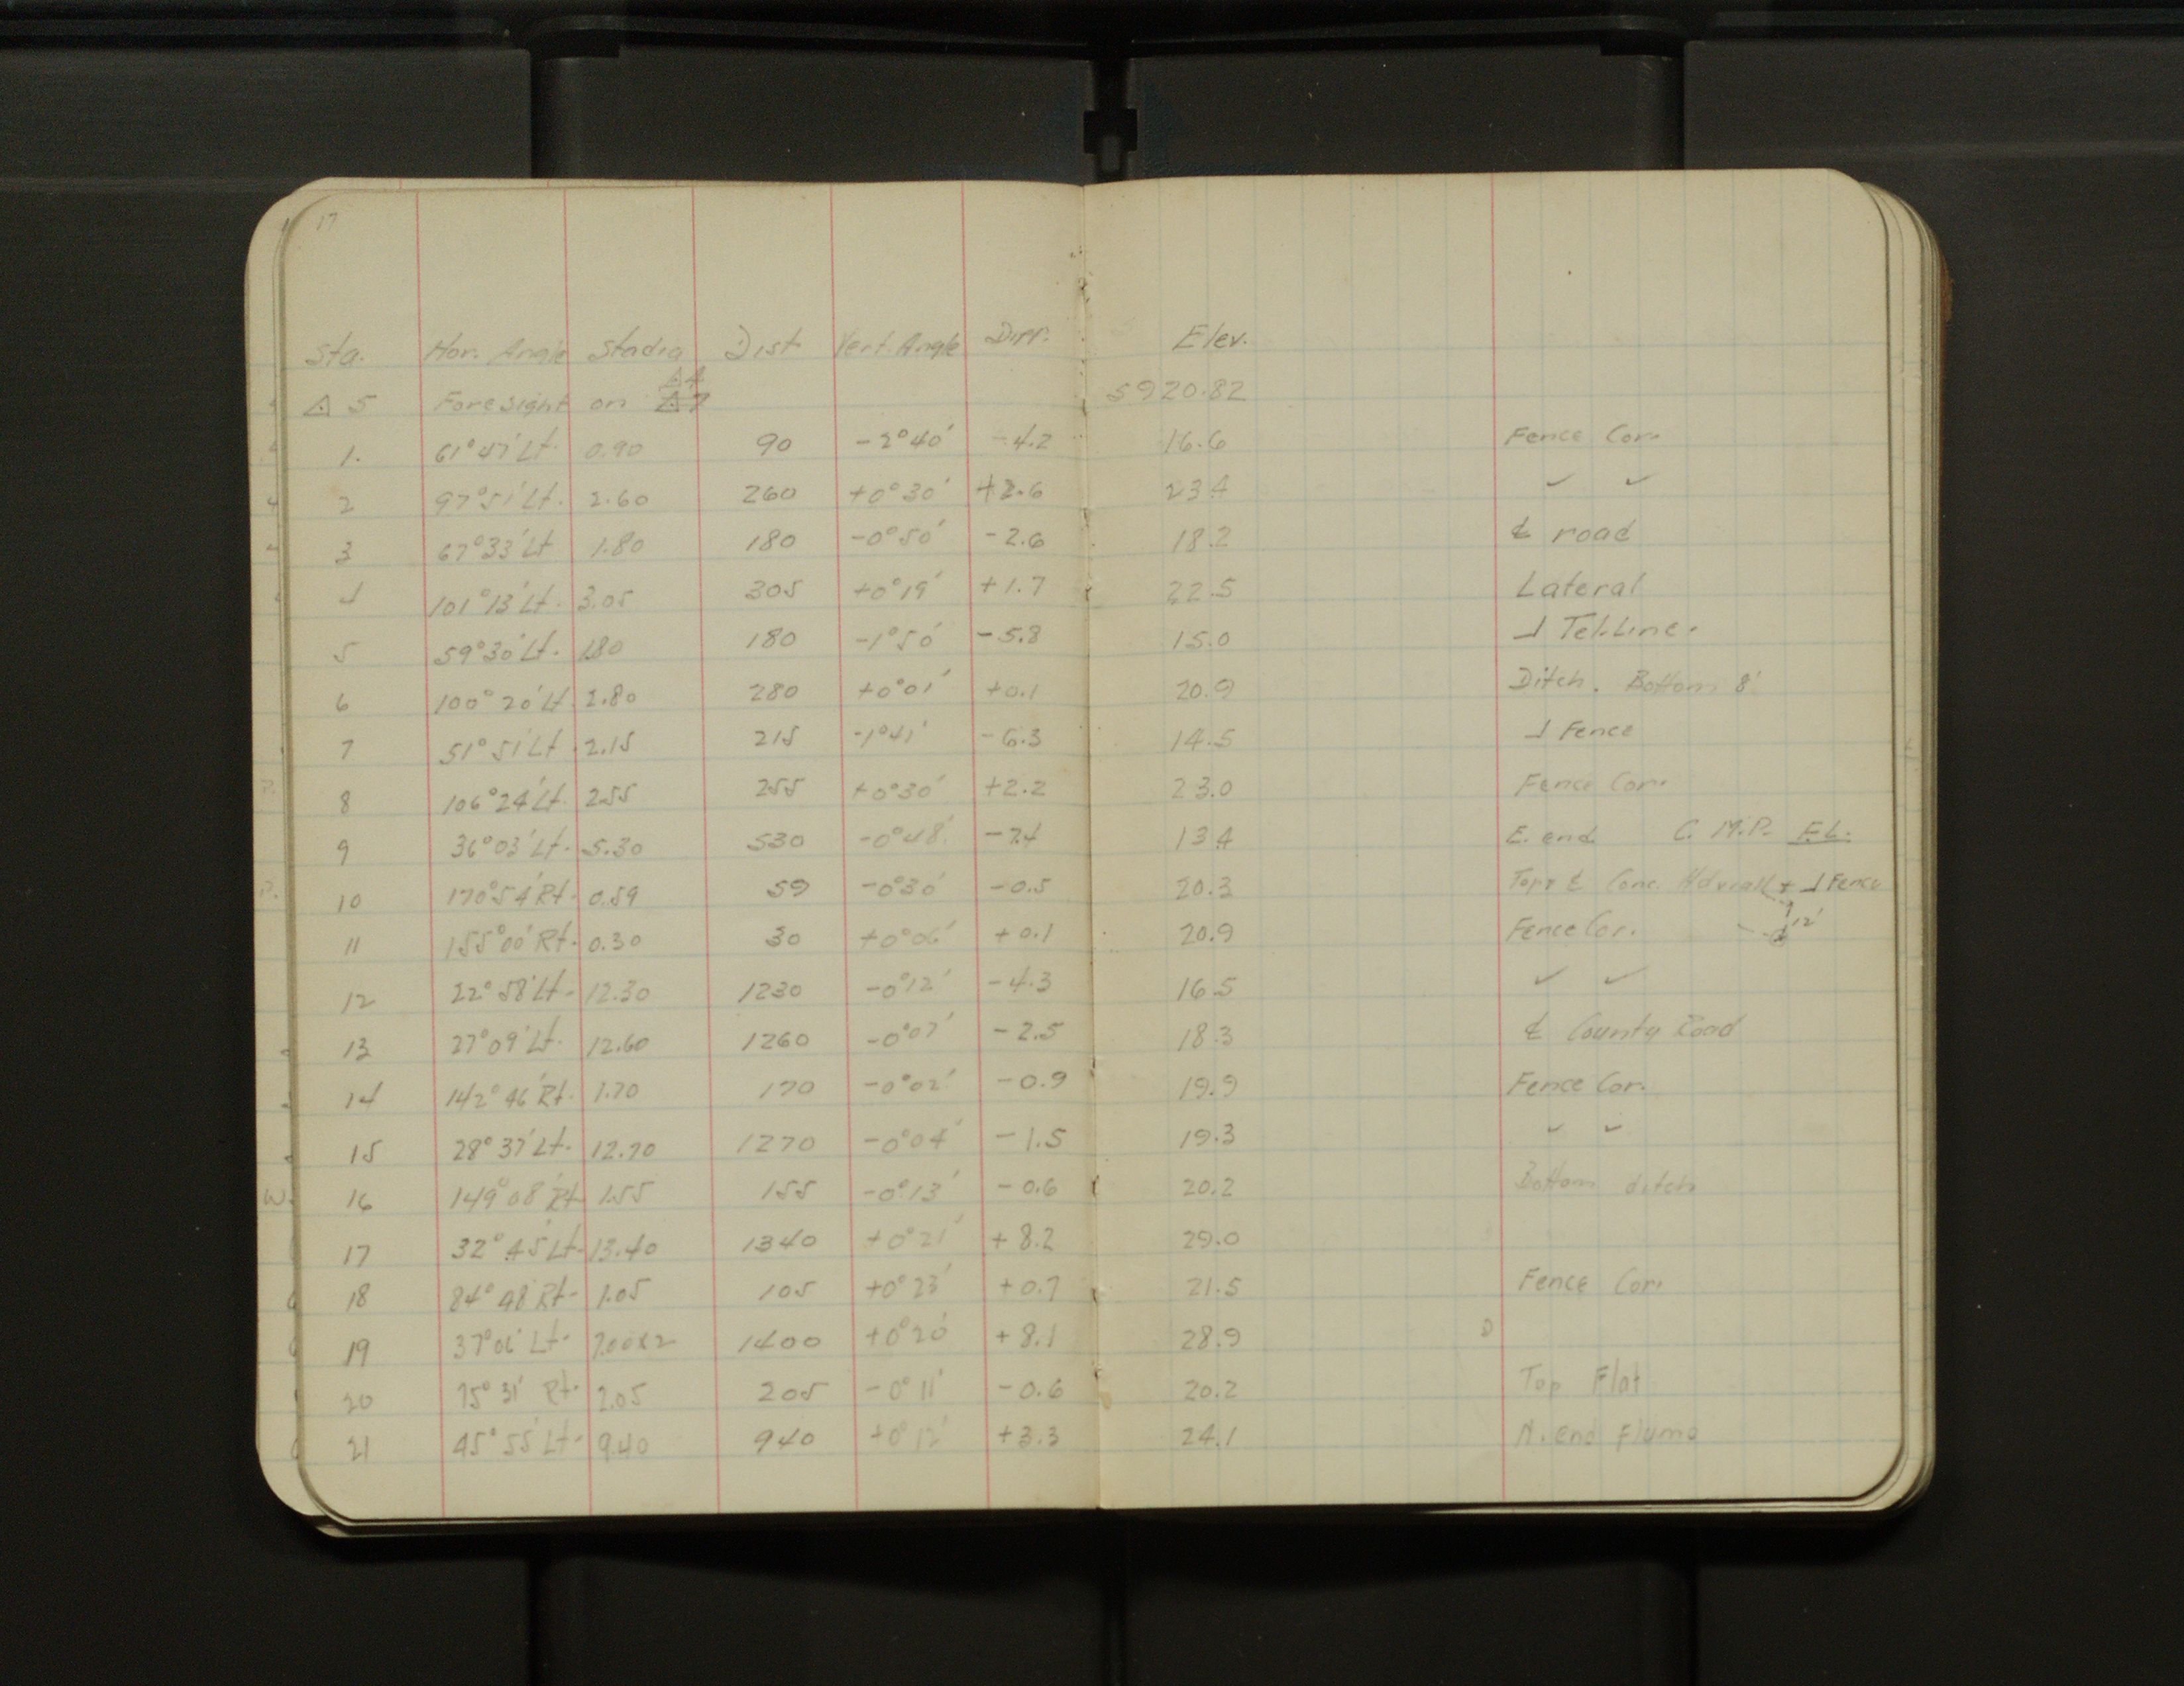 17
Sta. Hor. Angle Stadia Dist Vert. Angle Diff. Elev.
△4
△ 5 Foresight on △7 5920.82
1. 61°47' Lt. 0.90 90 -2°40' -4.2 16.6 Fence Cor.
2 97°51' Lt. 2.60 260 +0°30' +2.6 23.4 ✓ ✓
3 67°33' Lt 1.80 180 -0°50' -2.6 18.2 ℄ road
4 101°13' Lt. 3.05 305 +0°19' +1.7 22.5 Lateral
5 59°30' Lt. 1.80 180 -1°50' -5.8 15.0 ⊥ Tel. Line.
6 100°20' Lt. 2.80 280 +0°01' +0.1 20.9 Ditch. Bottom 8'
7 51°51' Lt. 2.15 215 -1°41' -6.3 14.5 ⊥ Fence
8 106°24' Lt. 2.55 255 +0°30' +2.2 23.0 Fence Cor.
9 36°03' Lt. 5.30 530 -0°48' -7.4 13.4 E. end C. M.P. F.L.
10 170°54' Rt. 0.59 59 -0°30' -0.5 20.3 Top ℄ Conc. Hdwall + ⊥ Fence
11 155°00' Rt. 0.30 30 +0°06' +0.1 20.9 Fence Cor. 12'
12 22°58' Lt. 12.30 1230 -0°12' -4.3 16.5 ✓ ✓
13 27°09' Lt. 12.60 1260 -0°07' -2.5 18.3 ℄ County Road
14 142°46' Rt. 1.70 170 -0°02' -0.9 19.9 Fence Cor.
15 28°37' Lt. 12.70 1270 -0°04' -1.5 19.3 ✓ ✓
16 149°08' Rt 1.55 155 -0°13' -0.6 20.2 Bottom ditch
17 32°45' Lt. 13.40 1340 +0°21' +8.2 29.0
18 84°48' Rt. 1.05 105 +0°23' +0.7 21.5 Fence Cor.
19 37°06' Lt. 7.00x2 1400 +0°20' +8.1 28.9
20 75°31' Rt. 2.05 205 -0°11' -0.6 20.2 Top Flat
21 45°55' Lt. 9.40 940 +0°12' +3.3 24.1 N. end Flume